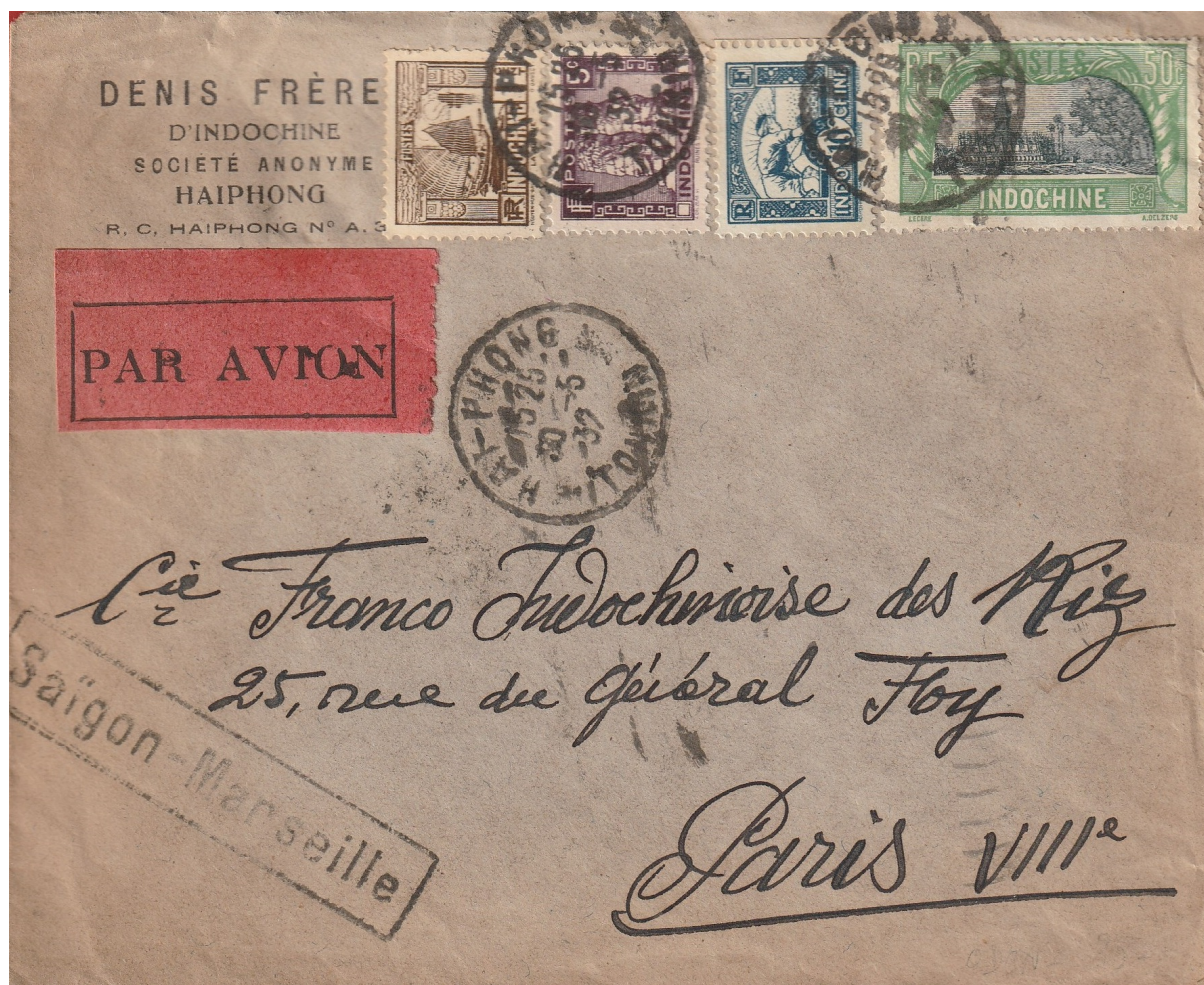 DENIS FRÈRE
D'INDOCHINE
SOCIÉTÉ ANONYME
HAIPHONG
R. C. HAIPHONG Nº A. 3
POSTES
RF INDOCHINE
POSTES 5c
RF INDOCHINE
R F
INDOCHINE
RF POSTES 50c
INDOCHINE
LECERE A. DELZERS
PAR AVION
HAI-PHONG
15 25
30 -5
32
(TONKIN)
Cie Franco Indochinoise des Riz
25, rue du Général Foy
Paris VIIIe
Saïgon-Marseille